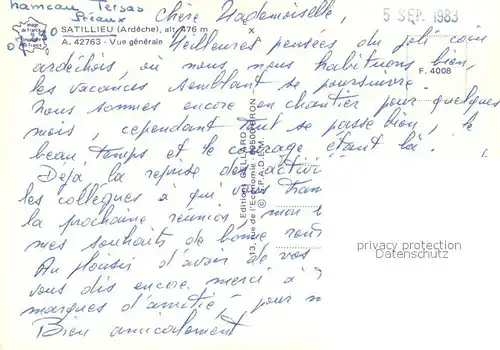 hameau Teisas
Préaux
07290
Image de France
SATILLIEU (Ardèche), alt. 476 m
A. 42763 - Vue générale
x
5 SEP. 1983
F. 4008
Chère Mademoiselle,
Meilleures pensées du joli coin
ardéchois, où nous nous habituons bien,
les vacances semblant se poursuivre.
Nous sommes encore en chantier pour quelques
mois, cependant tout se passe bien, le
beau temps et le courage étant là.
Déjà la reprise des activi
les collègues à qui vous tran
la prochaine réunion, mon b
mes souhaits de bonne ren
Au plaisir d'avoir de vos
vous dis encore merci à
marques d'amitié, pour m
Bien amicalement
13, rue de l'Economie
© S.P.A.D.E.M.
privacy protection
Datenschutz